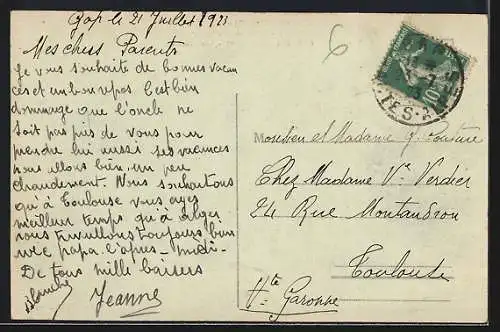 Gap le 21 Juillet 1923
Mes chers Parents
Je vous souhaite de bonnes vacan
ces et un bon repos C'est bien
dommage que l'oncle ne
soit pas pas de vous pour
prendre lui aussi ses vacances
nous allons bien, un peu
chaudement. Nous souhaitons
qu'à Toulouse vous ayez
meilleur temps qu'à
nous travaillons toujours bien
avec papa l'après-midi-
De tous mille baisers
Blanche
Jeanne
6
Monsieur et Madame
Chez Madame Vve Verdier
24 Rue Montaudran
Toulouse
Hte Garonne